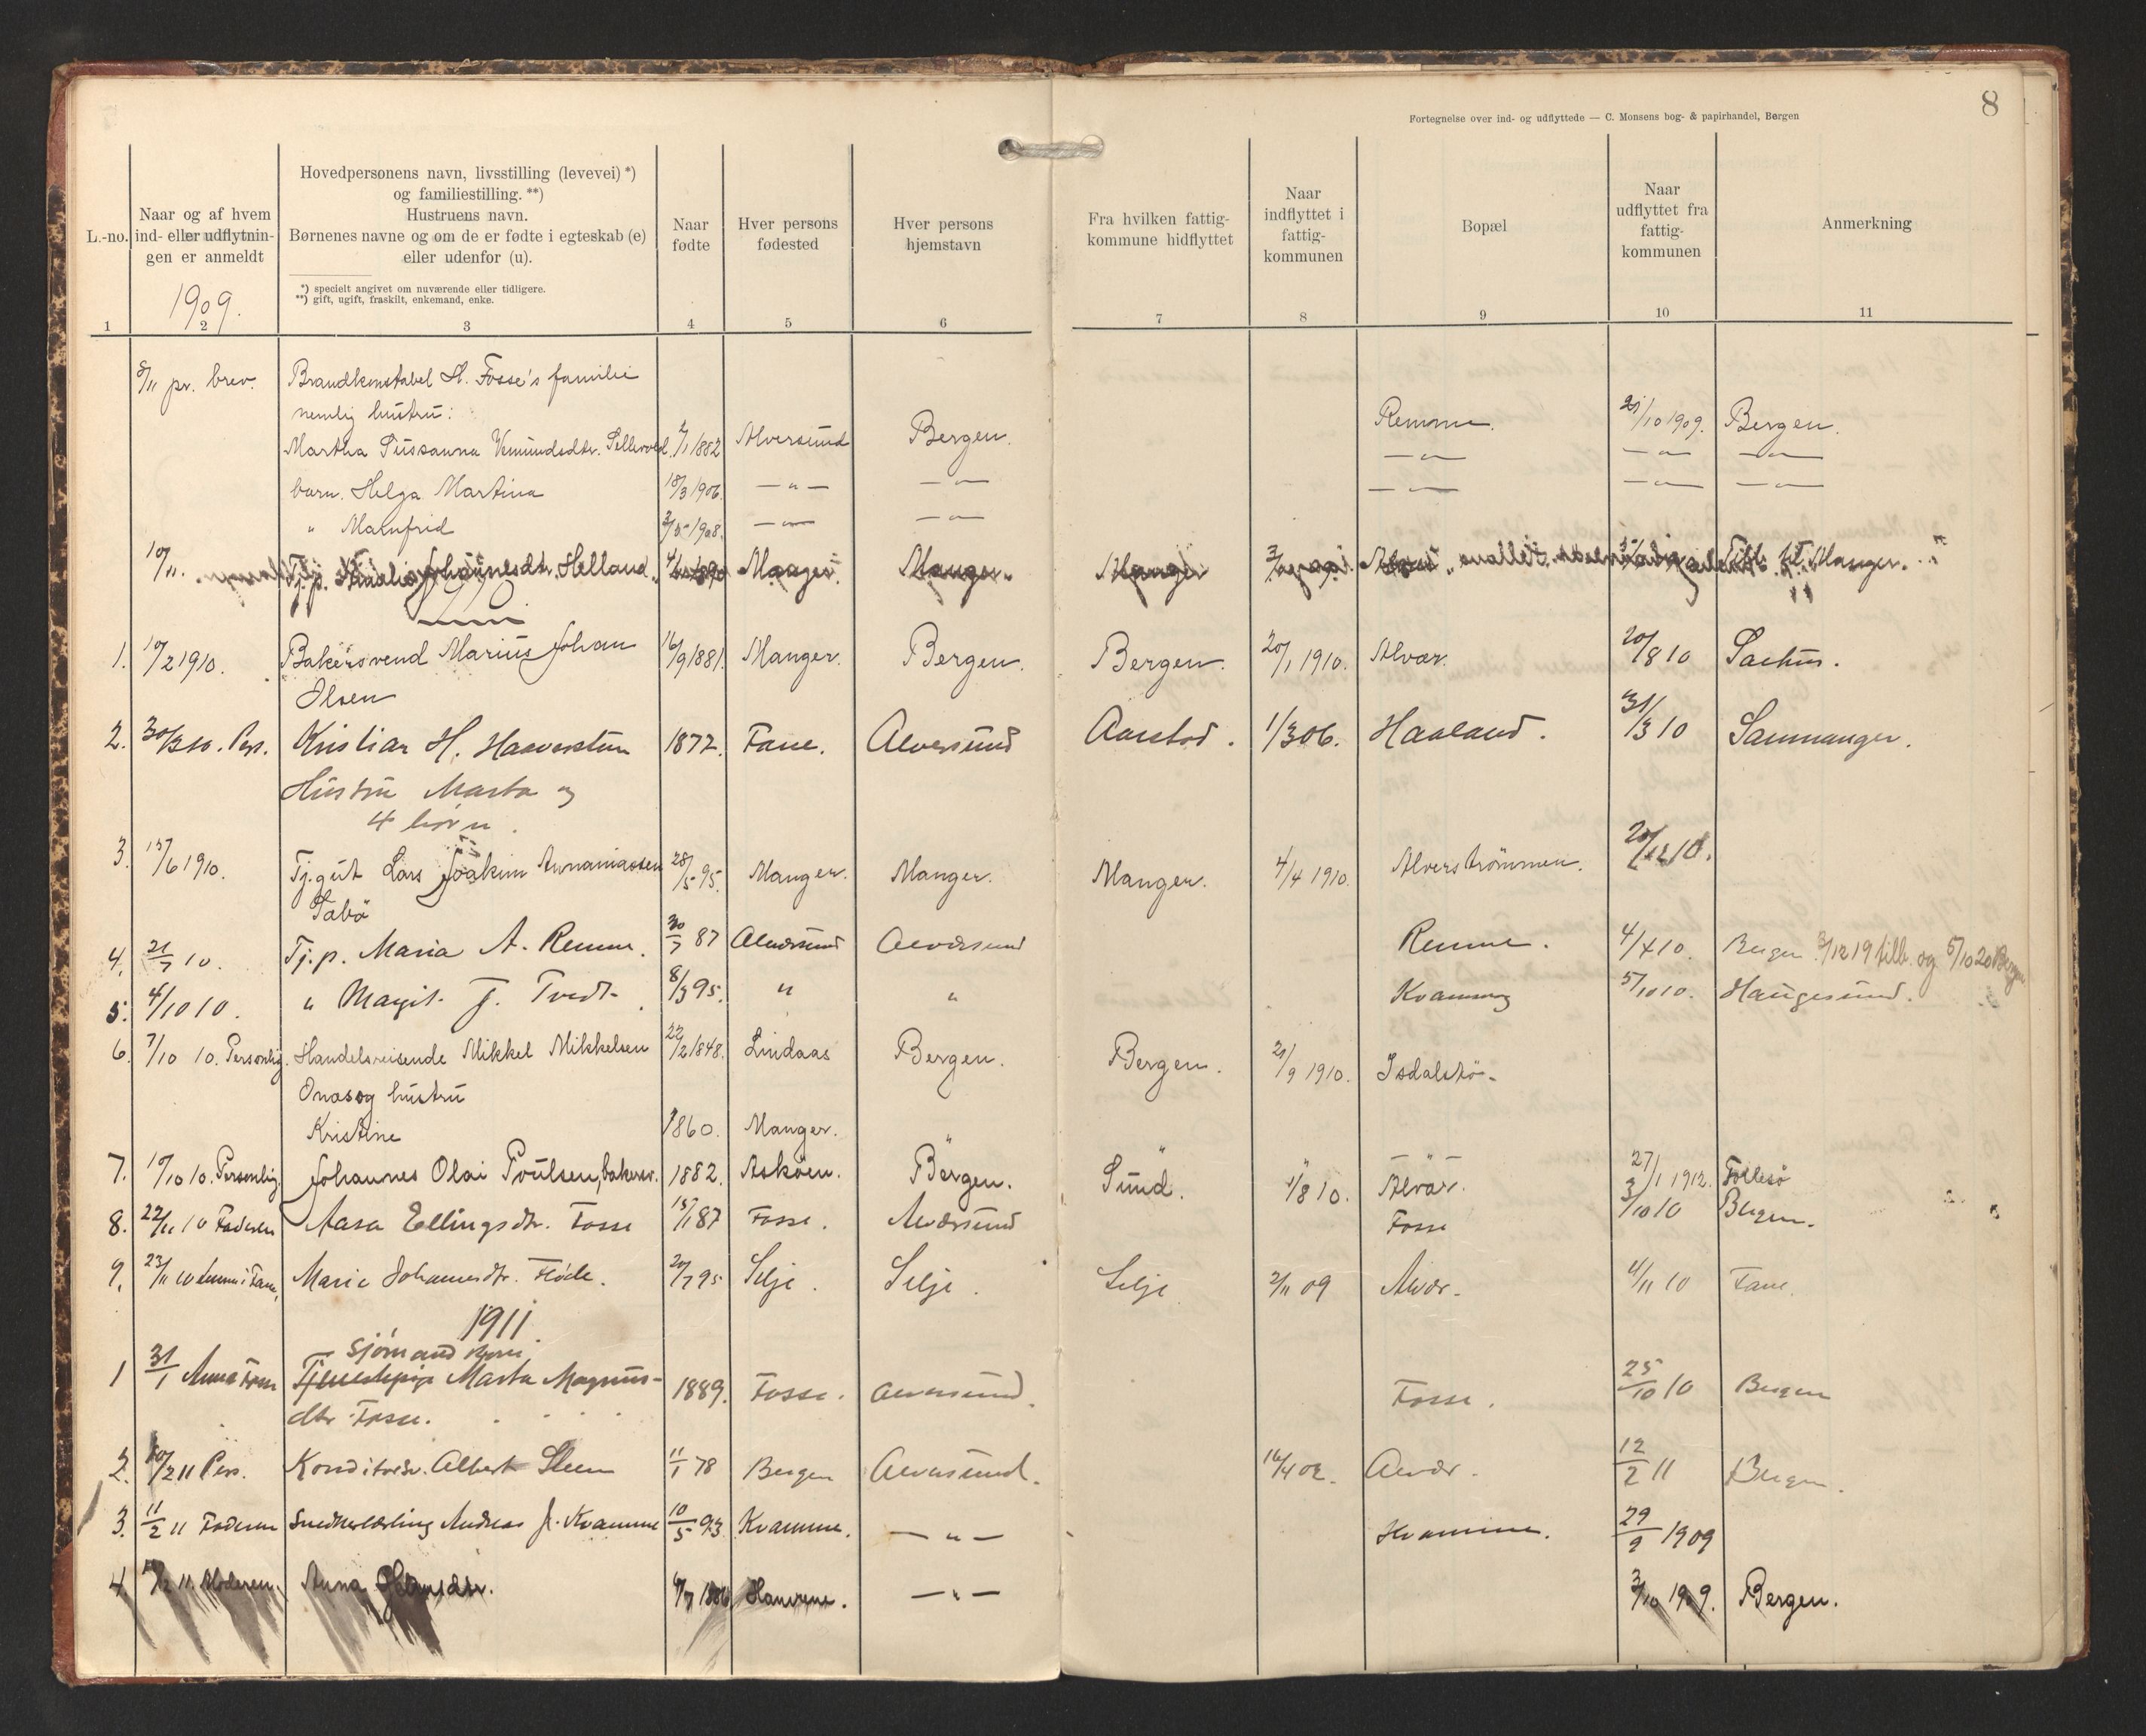 8
Fortegnelse over ind- og udflyttede — C. Monsens bog- & papirhandel, Bergen
L.-no.
Naar og af hvem
ind- eller udflytnin-
gen er anmeldt
1909.
Hovedpersonens navn, livsstilling (levevei) *)
og familiestilling. **)
Hustruens navn.
Børnenes navne og om de er fødte i egteskab (e)
eller udenfor (u).
*) specielt angivet om nuværende eller tidligere.
**) gift, ugift, fraskilt, enkemand, enke.
Naar
fødte
Hver persons
fødested
Hver persons
hjemstavn
Fra hvilken fattig-
kommune hidflyttet
Naar
indflyttet i
fattig-
kommunen
Bopæl
Naar
udflyttet fra
fattig-
kommunen
Anmerkning
1 2 3 4 5 6 7 8 9 10 11
8/11 pr. brev. Brandkonstabel H. Fosse's familie
nemlig hustru: Remme. 21/10 1909. Bergen.
Martha Susanna 1882 Alversund Bergen. — " — — " — — " —
barn. Helga Martina 18/3 1906. — " — — " — — " — — " — — " —
" Manfrid 1908. — " — — " —
10/11. Tj.p. Johannesdtr. Helland Manger Manger. Manger Manger.
1910
1. 10/2 1910. Bakersvend Marius Johan 16/9 1881. Manger. Bergen. Bergen. 20/1 1910. Alvær. 20/8 10
Olsen
2. 30/3 10. Pers. Kristian H. 1872. Fane. Alversund Aarstad. 1/3 06. Haaland. 31/3 10 Samnanger.
Hustru Marta og
4 børn.
3. 15/6 1910. Tj.gut Lars Joakim Annaniassen 28/5 95. Manger. Manger. Manger. 4/4 1910. Alverströmmen. 20/12 10.
Tabö
4. 21/7 10. Tj.p. Maria A. Remme. 30/7 87 Alversund Alversund Remme. 4/4 10. Bergen 3/12 19 tilb. og 5/10 20 Bergen
5. 4/10 10. " Margit J. Tvedt 8/3 95. " " Kvamme 5/10 10. Haugesund.
6. 7/10 10. Personlig. Handelsreisende Mikkel Mikkelsen 22/2 1848. Lindaas Bergen. Bergen. 21/9 1910. Isdalstö.
Onas og hustru
Kristine 1860. Manger. "
7. 10/10 10. Personlig. Johannes Olai Poulsen, bakersv. 1882. Asköen. Bergen. Sund. 1/8 10. Alvær. 27/1 1912. Follesö
8. 22/11 10 Faderen Aasa Ellingsdtr. Fosse 15/1 87 Fosse. Alversund Fosse 3/10 10 Bergen.
9. 23/11 10 Fane, Marie Johannesdtr. Flöde. 20/7 95 Selje. Selje. Selje 2/11 09 Alvær. 4/11 10 Fane.
1911.
Sjömand
1 31/1 Fosse Tjenestepige Marta Magnus- 1889. Fosse. Alversund. Fosse. 25/10 10 Bergen
dtr. Fosse.
2. 10/2 11 Pers. Konditorsv. Albert Steen 11/1 78 Bergen Alversund. 16/4 02. Alvær. 12/2 11 Bergen.
3. 11/2 11 Faderen Snedkerlærling Andreas J. Kvamme 10/5 93 Kvamme. — " — Kvamme. 29/9 1909
4. 11. Moderen. Anna 1886 — " — 3/10 1909. Bergen.